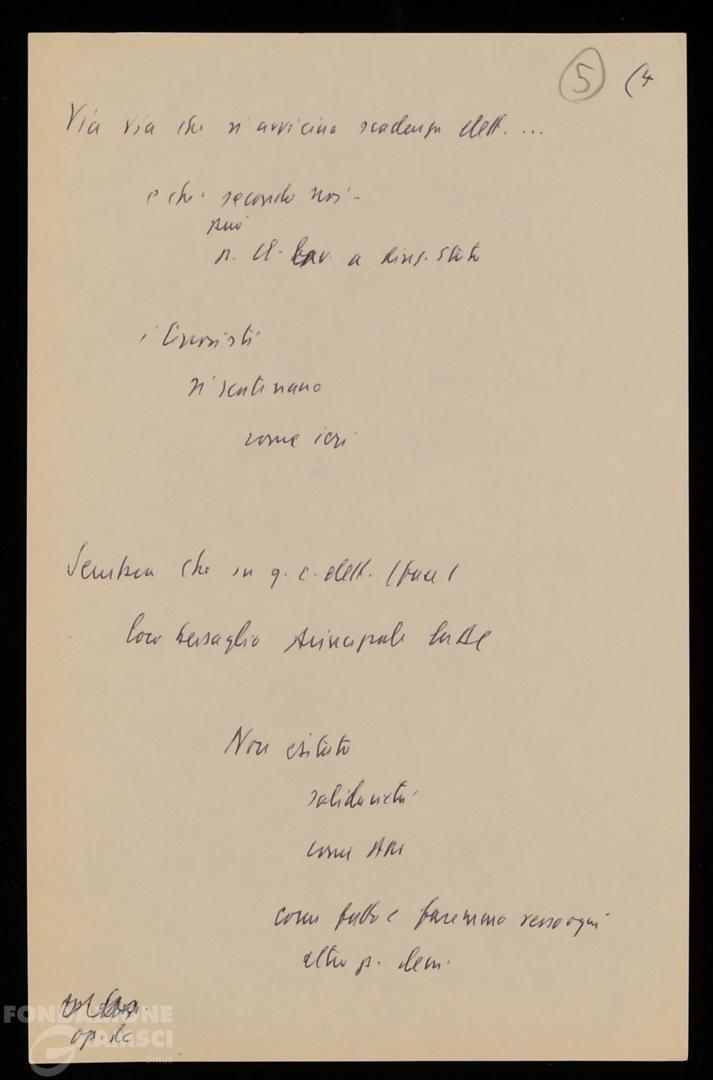 5 (4
Via via che si avvicina scadenza elett. ...
e che secondo noi
può
a dims. stato
i terroristi
si scatenano
come ieri
Sembra che in q. c. elett. (fare)
loro bersaglio principale la DC
Non esitato
solidarietà
come
come fatto e faremmo verso ogni
altro p. dem.
op. dc
FONDAZIONE
GRAMSCI
onlus